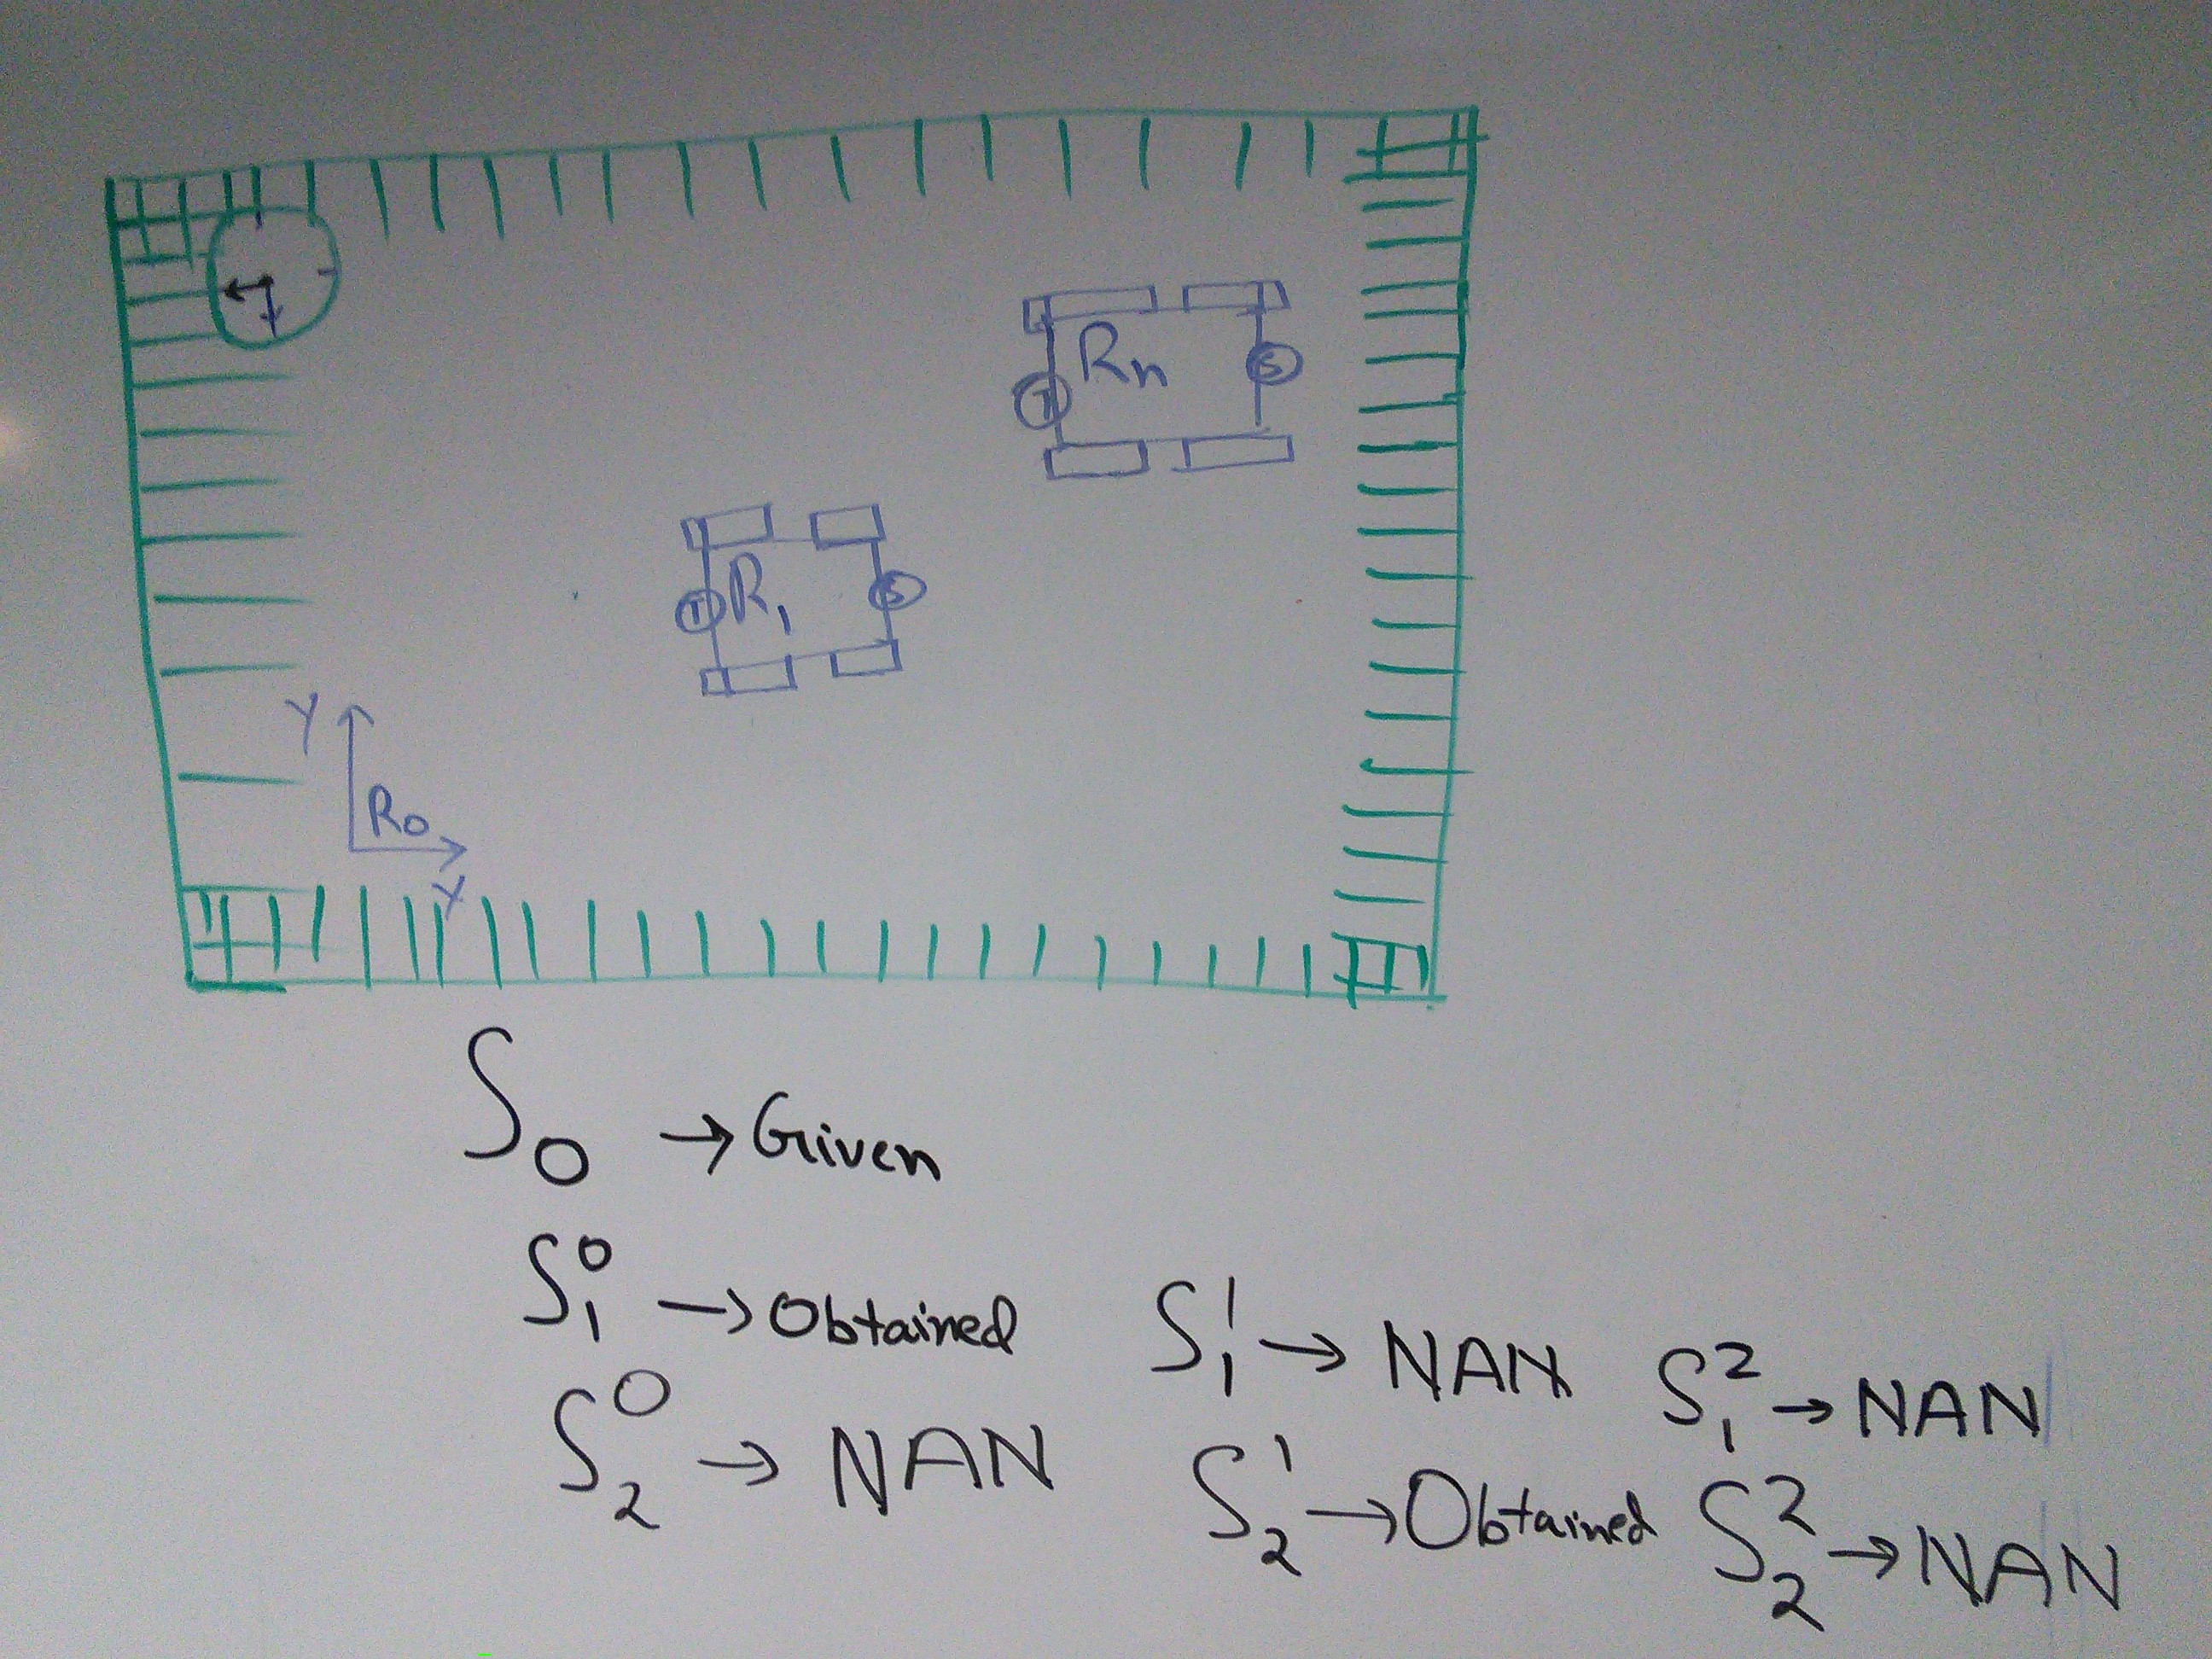 Rn
T
S
R1
T
S
Y
R0
X
S0 → Given
S1^0 → Obtained
S1^1 → NAN
S1^2 → NAN
S2^0 → NAN
S2^1 → Obtained
S2^2 → NAN